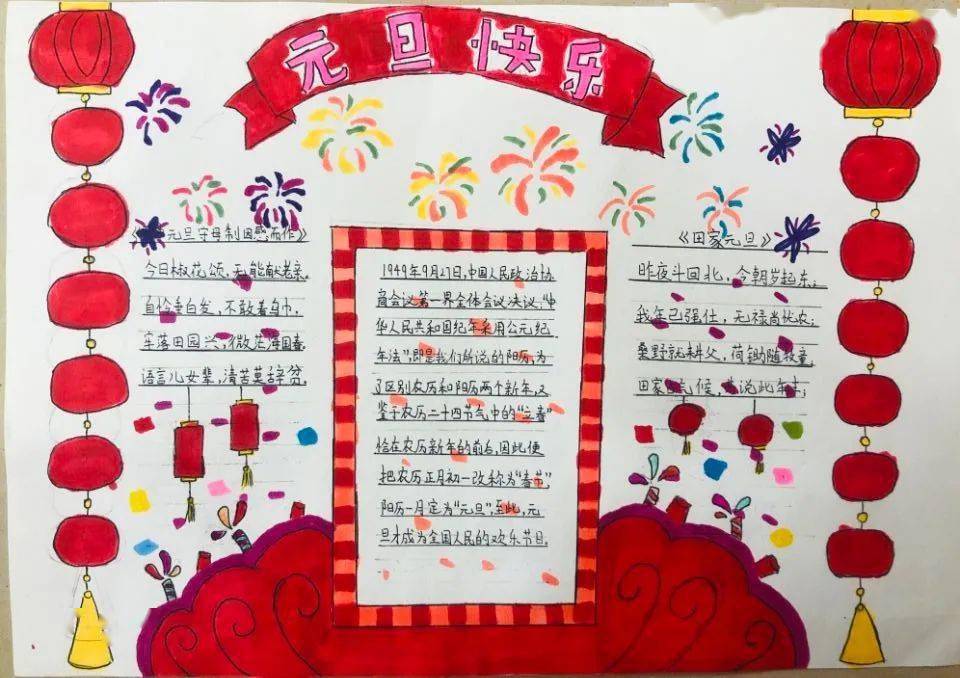 元旦快乐
元旦守母制因感而作》
今日椒花颂,无能献老亲.
自怜垂白发,不敢着乌巾,
牢落田园兴,微茫海国春.
语言儿女辈,清苦莫辞贫.
1949年9月27日,中国人民政治协
商会议第一界全体会议决议,"中
华人民共和国纪年采用公元纪
年法",即是我们所说的阳历,为
了区别农历和阳历两个新年,又
鉴于农历二十四节气中的"立春"
恰在农历新年的前后,因此便
把农历正月初一改称为"春节",
阳历一月定为"元旦",至此,元
旦才成为全国人民的欢乐节日.
《田家元旦》
昨夜斗回北,今朝岁起东;
我年已强仕,无禄尚忧农;
桑野就耕父,荷锄随牧童
田家气候,说此年